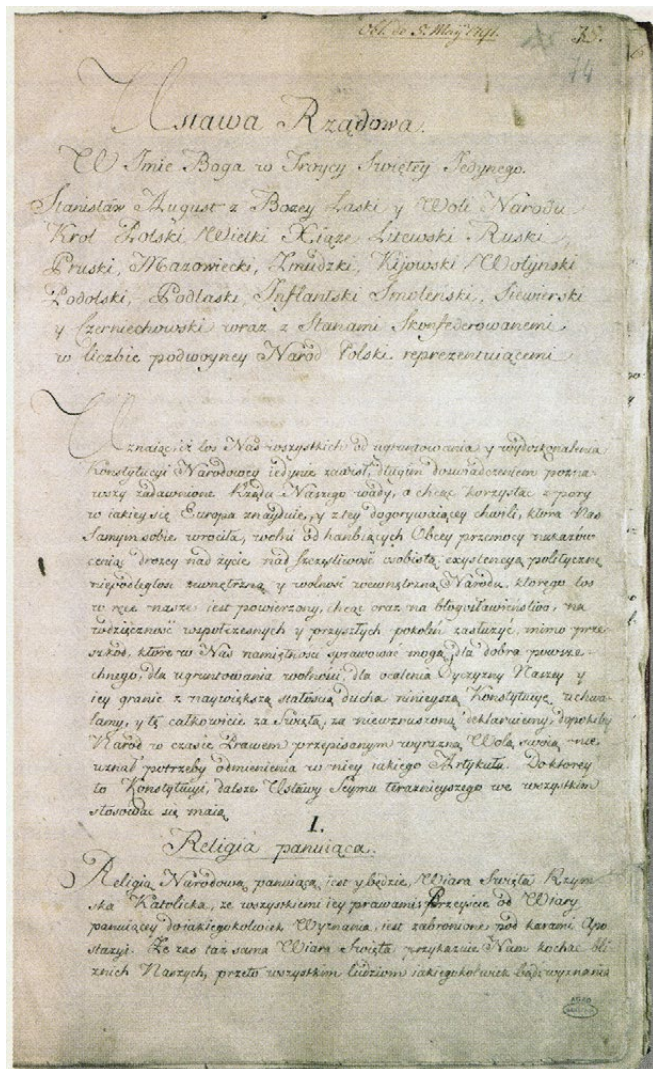 Obl. de 5. Maij 1791.
14
Ustawa Rządowa.
W Imie Boga w Troycy Swiętey Jedynego.
Stanisław August z Bożey Łaski y Woli Narodu
Krol Polski, Wielki Xiąże Litewski, Ruski,
Pruski, Mazowiecki, Zmudzki, Kijowski, Wołyński
Podolski, Podlaski, Inflantski, Smolenski, Siewierski
y Czerniechowski wraz z Stanami Skonfederowanemi
w liczbie podwoyney Naród Polski reprezentuiącemi
Uznaiąc, iż los Nas wszystkich od ugruntowania y wydoskonalenia
Konstytucyi Narodowey iedynie zawisł, długim doswiadczeniem pozna-
wszy zadawnione Rządu Naszego wady, a chcąc korzystac z pory
w iakiey się Europa znayduie, y z tey dogorywaiącey chwili, ktora Nas
samym sobie wrociła, wolni od hanbiących Obcey przemocy nakazow
ceniąc drożey nad życie, nad szczęsliwość osobistą, exystencyą polityczną
niepodległość zewnętrzną y wolność wewnętrzną Narodu, ktorego los
w ręce nasze iest powierzony, chcąc oraz na błogosławieństwo, na
wdzięczność wspołczesnych y przyszłych pokoleń zasłużyć, mimo prze-
szkod, ktore w Nas namiętności sprawować mogą, dla dobra powsze-
chnego, dla ugruntowania wolności, dla ocalenia Oyczyzny Naszey y
iey granic z naywiększą stałością ducha ninieyszą Konstytucyę uchwa-
lamy, y tę całkowicie za swiętą, za niewzruszoną deklaruiemy, dopokiby
Narod w czasie Prawem przepisanym wyrazną Wolą swoią nie
uznał potrzeby odmienienia w niey iakiego Artykułu. Do ktorey
to Konstytucyi, dalsze Ustawy Seymu teraznieyszego we wszystkim
stosować się maią
I.
Religia panuiąca.
Religią Narodową panuiącą iest y będzie, Wiara Swięta Rzym-
ska Katolicka, ze wszystkiemi iey prawami. Przeyście od Wiary
panuiącey do iakiegokolwiek Wyznania, iest zabronione pod karami Apo-
stazyi. Że zaś taż sama Wiara Swięta przykazuie Nam kochać bli-
znich Naszych, przeto wszystkim ludziom iakiegokolwiek bądź wyznania